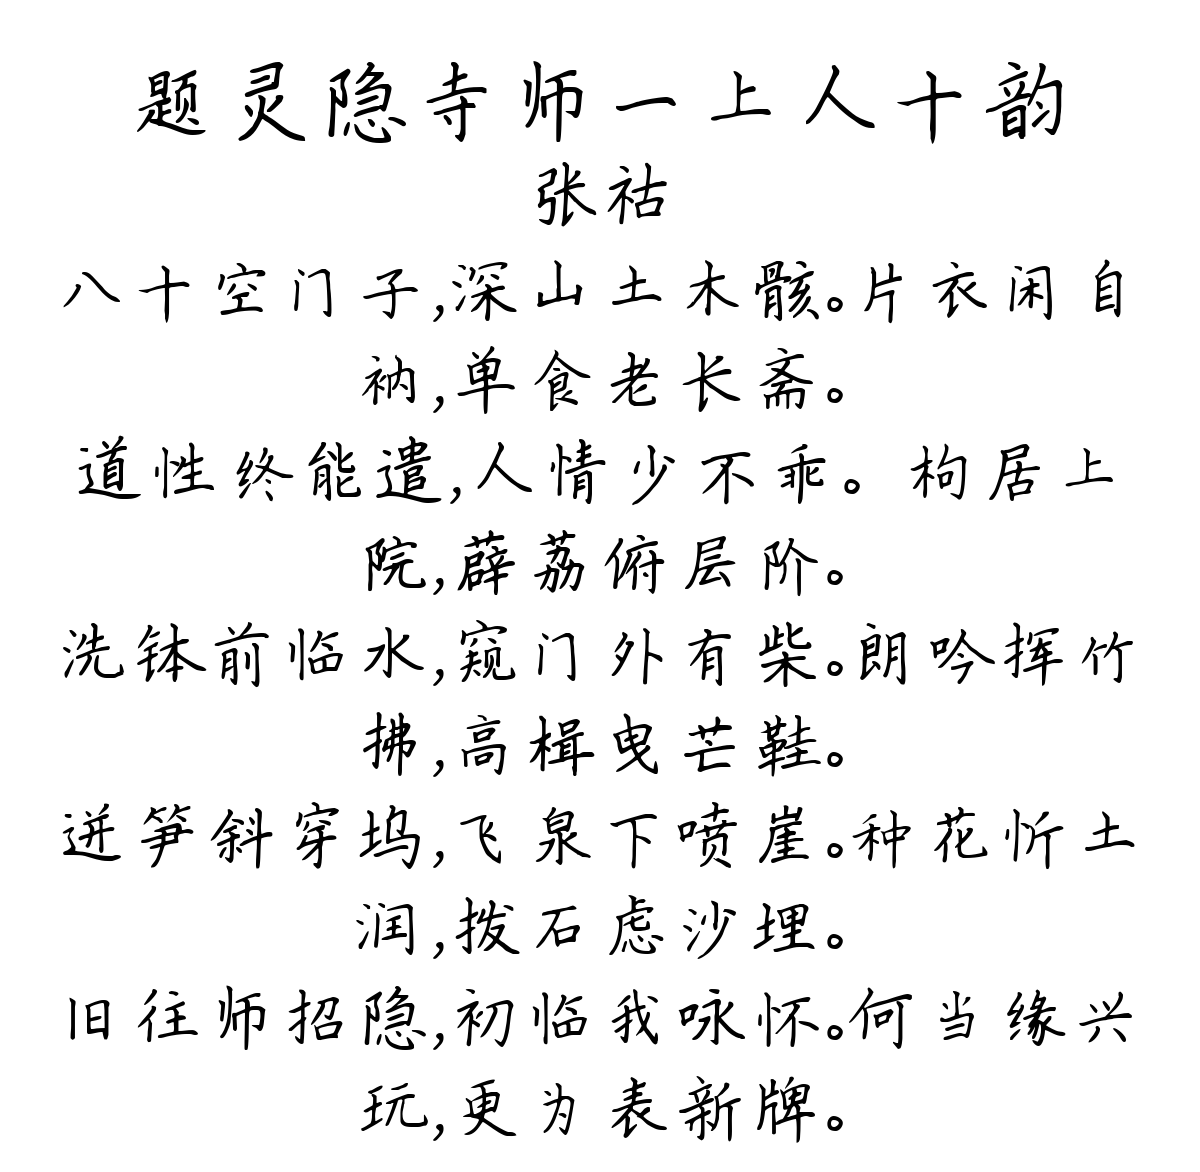 题灵隐寺师一上人十韵
张祜
八十空门子,深山土木骸。片衣闲自
衲,单食老长斋。
道性终能遣,人情少不乖。枸居上
院,薜荔俯层阶。
洗钵前临水,窥门外有柴。朗吟挥竹
拂,高楫曳芒鞋。
迸笋斜穿坞,飞泉下喷崖。种花忻土
润,拨石虑沙埋。
旧往师招隐,初临我咏怀。何当缘兴
玩,更为表新牌。